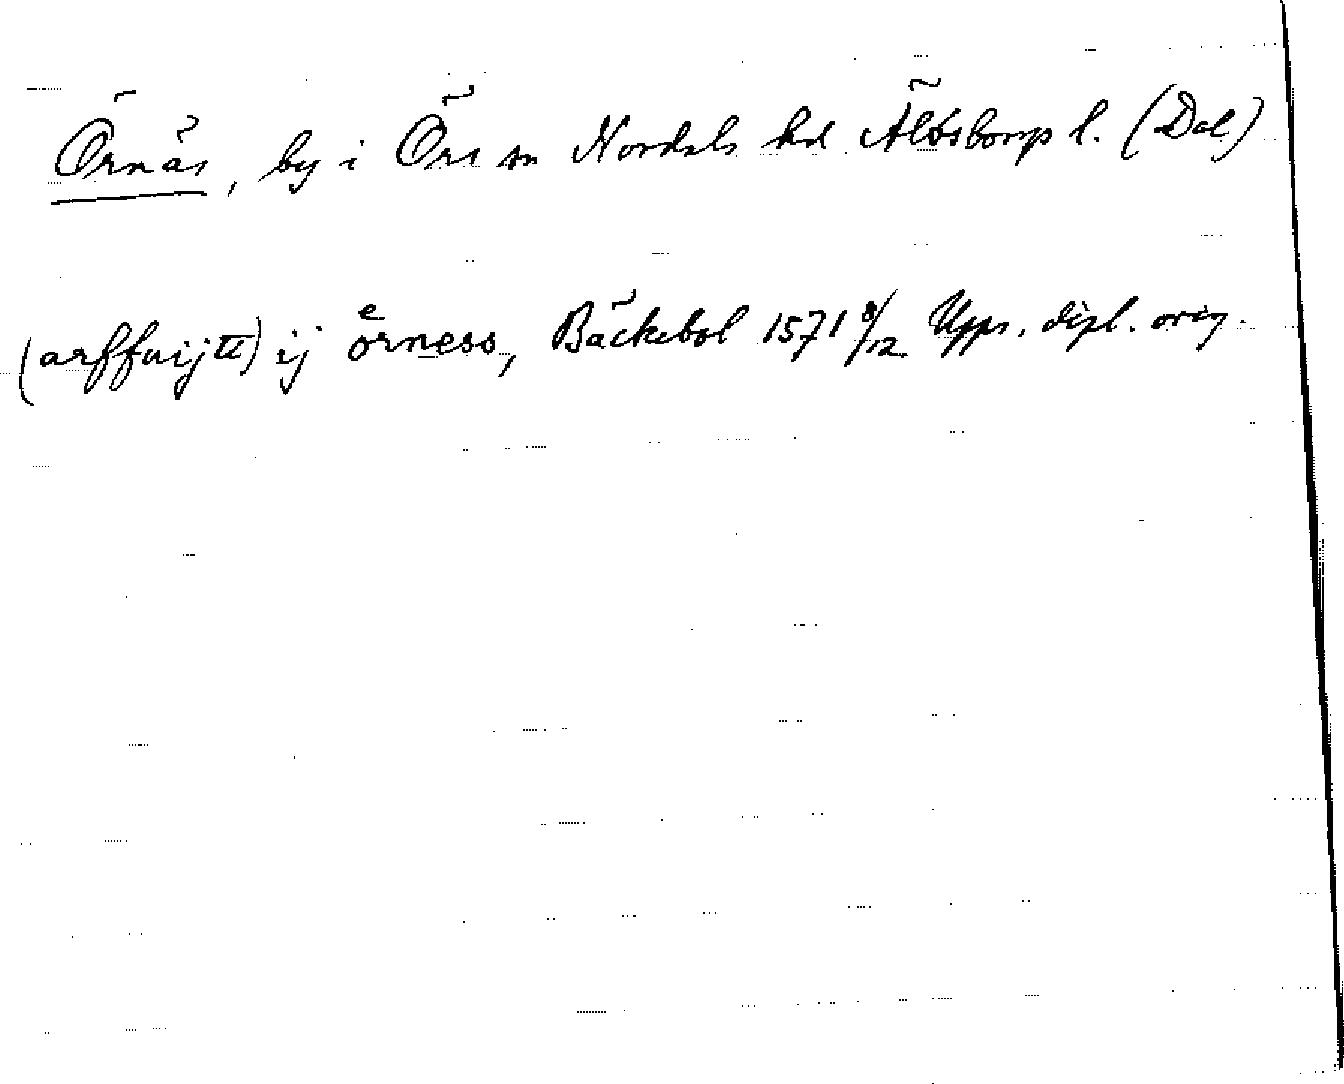 Örnäs, by i Örs sn Nordals hd Älvsborgs l. (Dal)
(arffuijtt) ij oͤrness, Bäckebol 1571 8/12 Upps. dipl. orig.